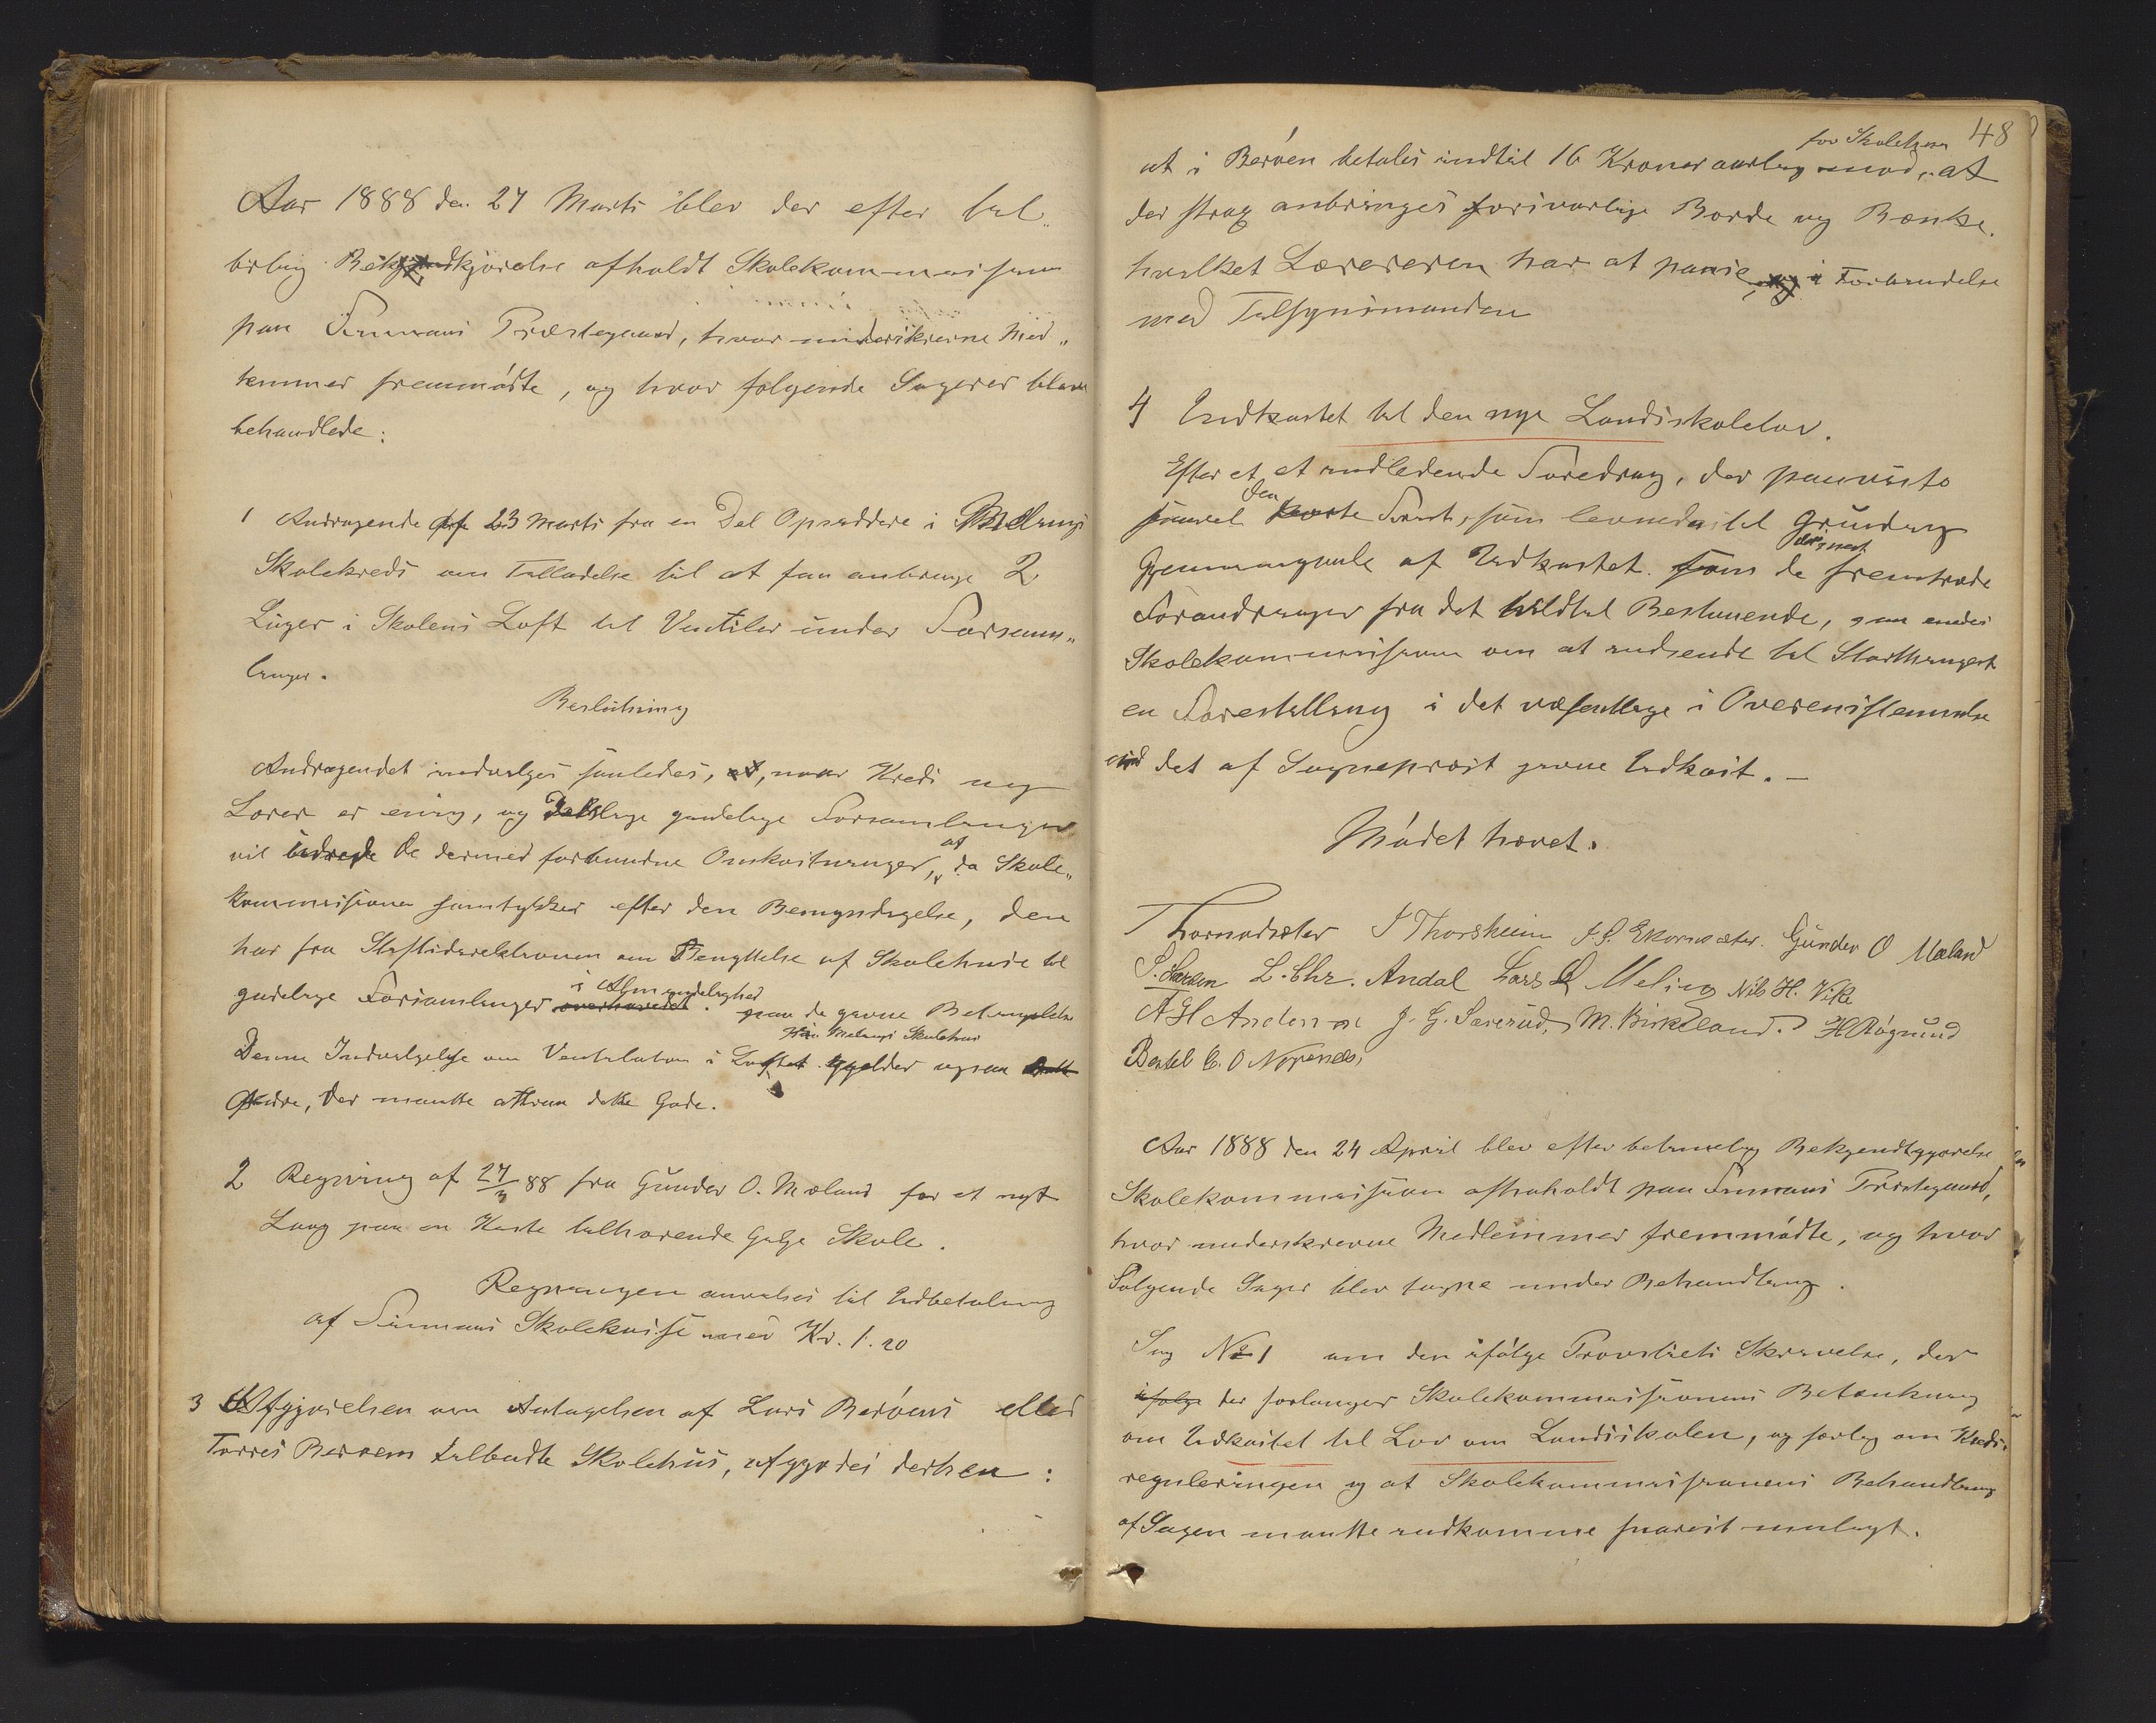 Aar 1888 den 27 Marts blev der efter bel„
birlig Bekjendtkjørelse afholdt Skolekommission
paa Finnaas Præstegaard, hvor underskrevne Med„
lemmer fremmødte, og hvor følgende Sager blev
behandlede:
1 Andragende af 23 Marts fra en Del Opsiddere i Melings
Skolekreds om Tilladelse til at faa anbringe 2
Luger i Skolens Loft til Ventiler under Forsam„
linger.
Beslutning
Andragendet indvilges saaledes, at, naar Kreds og
Lærer er enig, og gudelige Forsamlinger
vil udrede de dermed forbundne Omkostninger, at da Skole„
kommissionen samtykker efter den Bemyndigelse, den
har fra Stiftsdirektionen om Benyttelse af Skolehuse til
gudelige Forsamlinger overhovedet i Almindelighed paa de givne Betingelser
Denne Indvilgelse om Ventilation i Loftet i Melings Skolehus gjelder ogsaa
Andre, der maatte attraa dette Gode.
2 Regning af 27/3 88 fra Gunder O. Mæland for et nyt
Laag paa en Kiste tilhørende Skole.
Regningen anvises til Udbetaling
af Finnaas Skolekasse med Kr. 1.20
3 Afgjørelsen om Antagelsen af Lars Berøens eller
Torres Berøens tilbudte Skolehus, afgjordes derhen:
48
at i Berøen betales indtil 16 Kroner aarlig for Skolehuset mod, at
der strax anbringes forsvarlige Borde og Bænke.
hvilket Læreren har at paase i Forbindelse
med Tilsynsmanden
4 Udkastet til den nye Landsskolelov.
Efter et et indledende Foredrag, der paaviste
saavel den Trust, som levnedes til Grundig
Gjennemgaaelse af Udkastet som dernest de fremtrædende
Forandringer fra det hidtil Bestaaende,
Skolekommissionen om at indsende til Storthinget
en Forestilling i det væsentlige i Overensstemmelse
med det af Sognepræst givne Udkast. —
Mødet hævet.
Thormodsæter J Thorsheim J. S. Ekornsæter. Gunder O Mæland
S. Særsten L. Chr. Andal Lars O Meling Nils H. Vike
A H Andersen J. G. Særsud, M. Birkeland. H Røgsund
Bertel C. O Norenes,
Aar 1888 den 24 April blev efter betimelig Bekjendtgjørelse
Skolekommission afholdt paa Finnaas Præstegaard,
hvor underskrevne Medlemmer fremmødte, og hvor
Følgende Sager blev tagne under Behandling.
Sag № 1 om den ifølge Provstiets Skrivelse, der
ifølge der forlanger Skolekommissionens Betænkning
om Udkastet til Lov om Landsskolen, og særlig om Kreds„
reguleringen og at Skolekommissionens Behandling
af Sagen maatte indkomme snarest muligt.